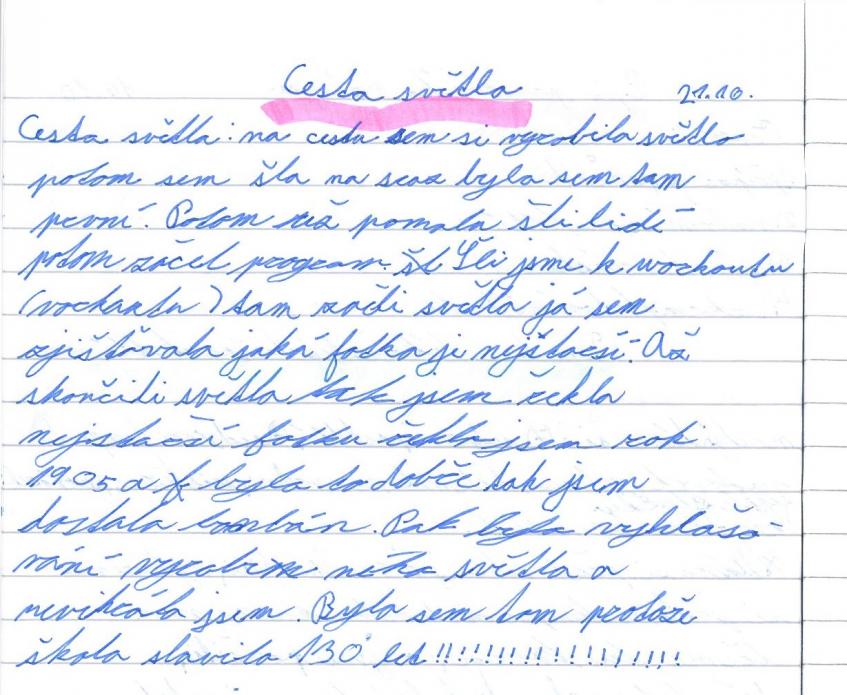 Cesta světla 21.10.
Cesta světla: na cestu sem si vyrobila světlo
potom sem šla na sraz byla sem tam
první. Potom už pomala šli lidé
potom začel program. Šli jsme k workoutu
(vorkautu) tam začli světla já sem
zjišťovala jaká fotka je nejštarší. Až
skončili světla tak jsem řekla
nejstarší fotku řekla jsem rok
1905 a byla to dobře tak jsem
dostala bonbón. Pak byla vyhlašo
vání vyrobeneho světla a
nevihrála jsem. Byla sem tam protože
škola slavila 130 let!!!!!!!!!!!!!!!!!!